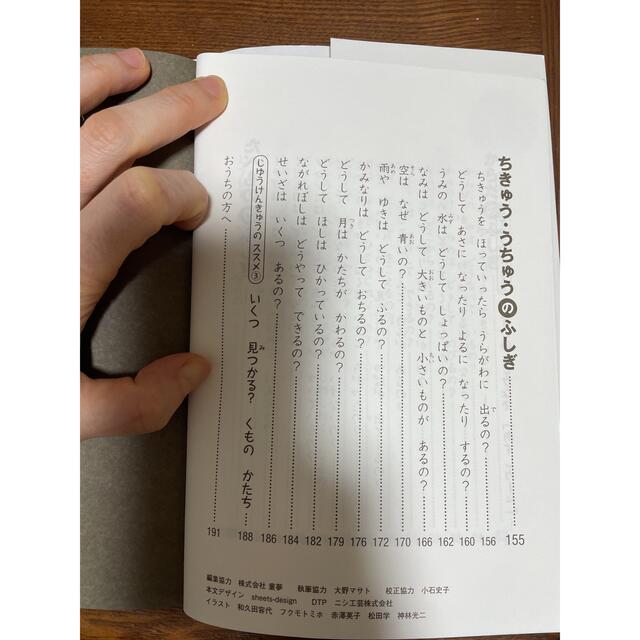 ちきゅう・うちゅうのふしぎ 155
ちきゅうを ほっていったら うらがわに 出るの? 156
どうして あさに なったり よるに なったり するの? 160
うみの 水は どうして しょっぱいの? 162
なみは どうして 大きいものと 小さいものが あるの? 166
空は なぜ 青いの? 170
雨や ゆきは どうして ふるの? 172
かみなりは どうして おちるの? 176
どうして 月は かたちが かわるの? 179
どうして ほしは ひかっているの? 182
ながれぼしは どうやって できるの? 184
せいざは いくつ あるの? 186
じゆうけんきゅうの ススメ③ いくつ 見つかる? くもの かたち 188
おうちの方へ 191
編集協力 株式会社 童夢 執筆協力 大野マサト 校正協力 小石史子
本文デザイン sheets-design DTP ニシ工芸株式会社
イラスト 和久田容代 フクモトミホ 赤澤英子 松田学 神林光二